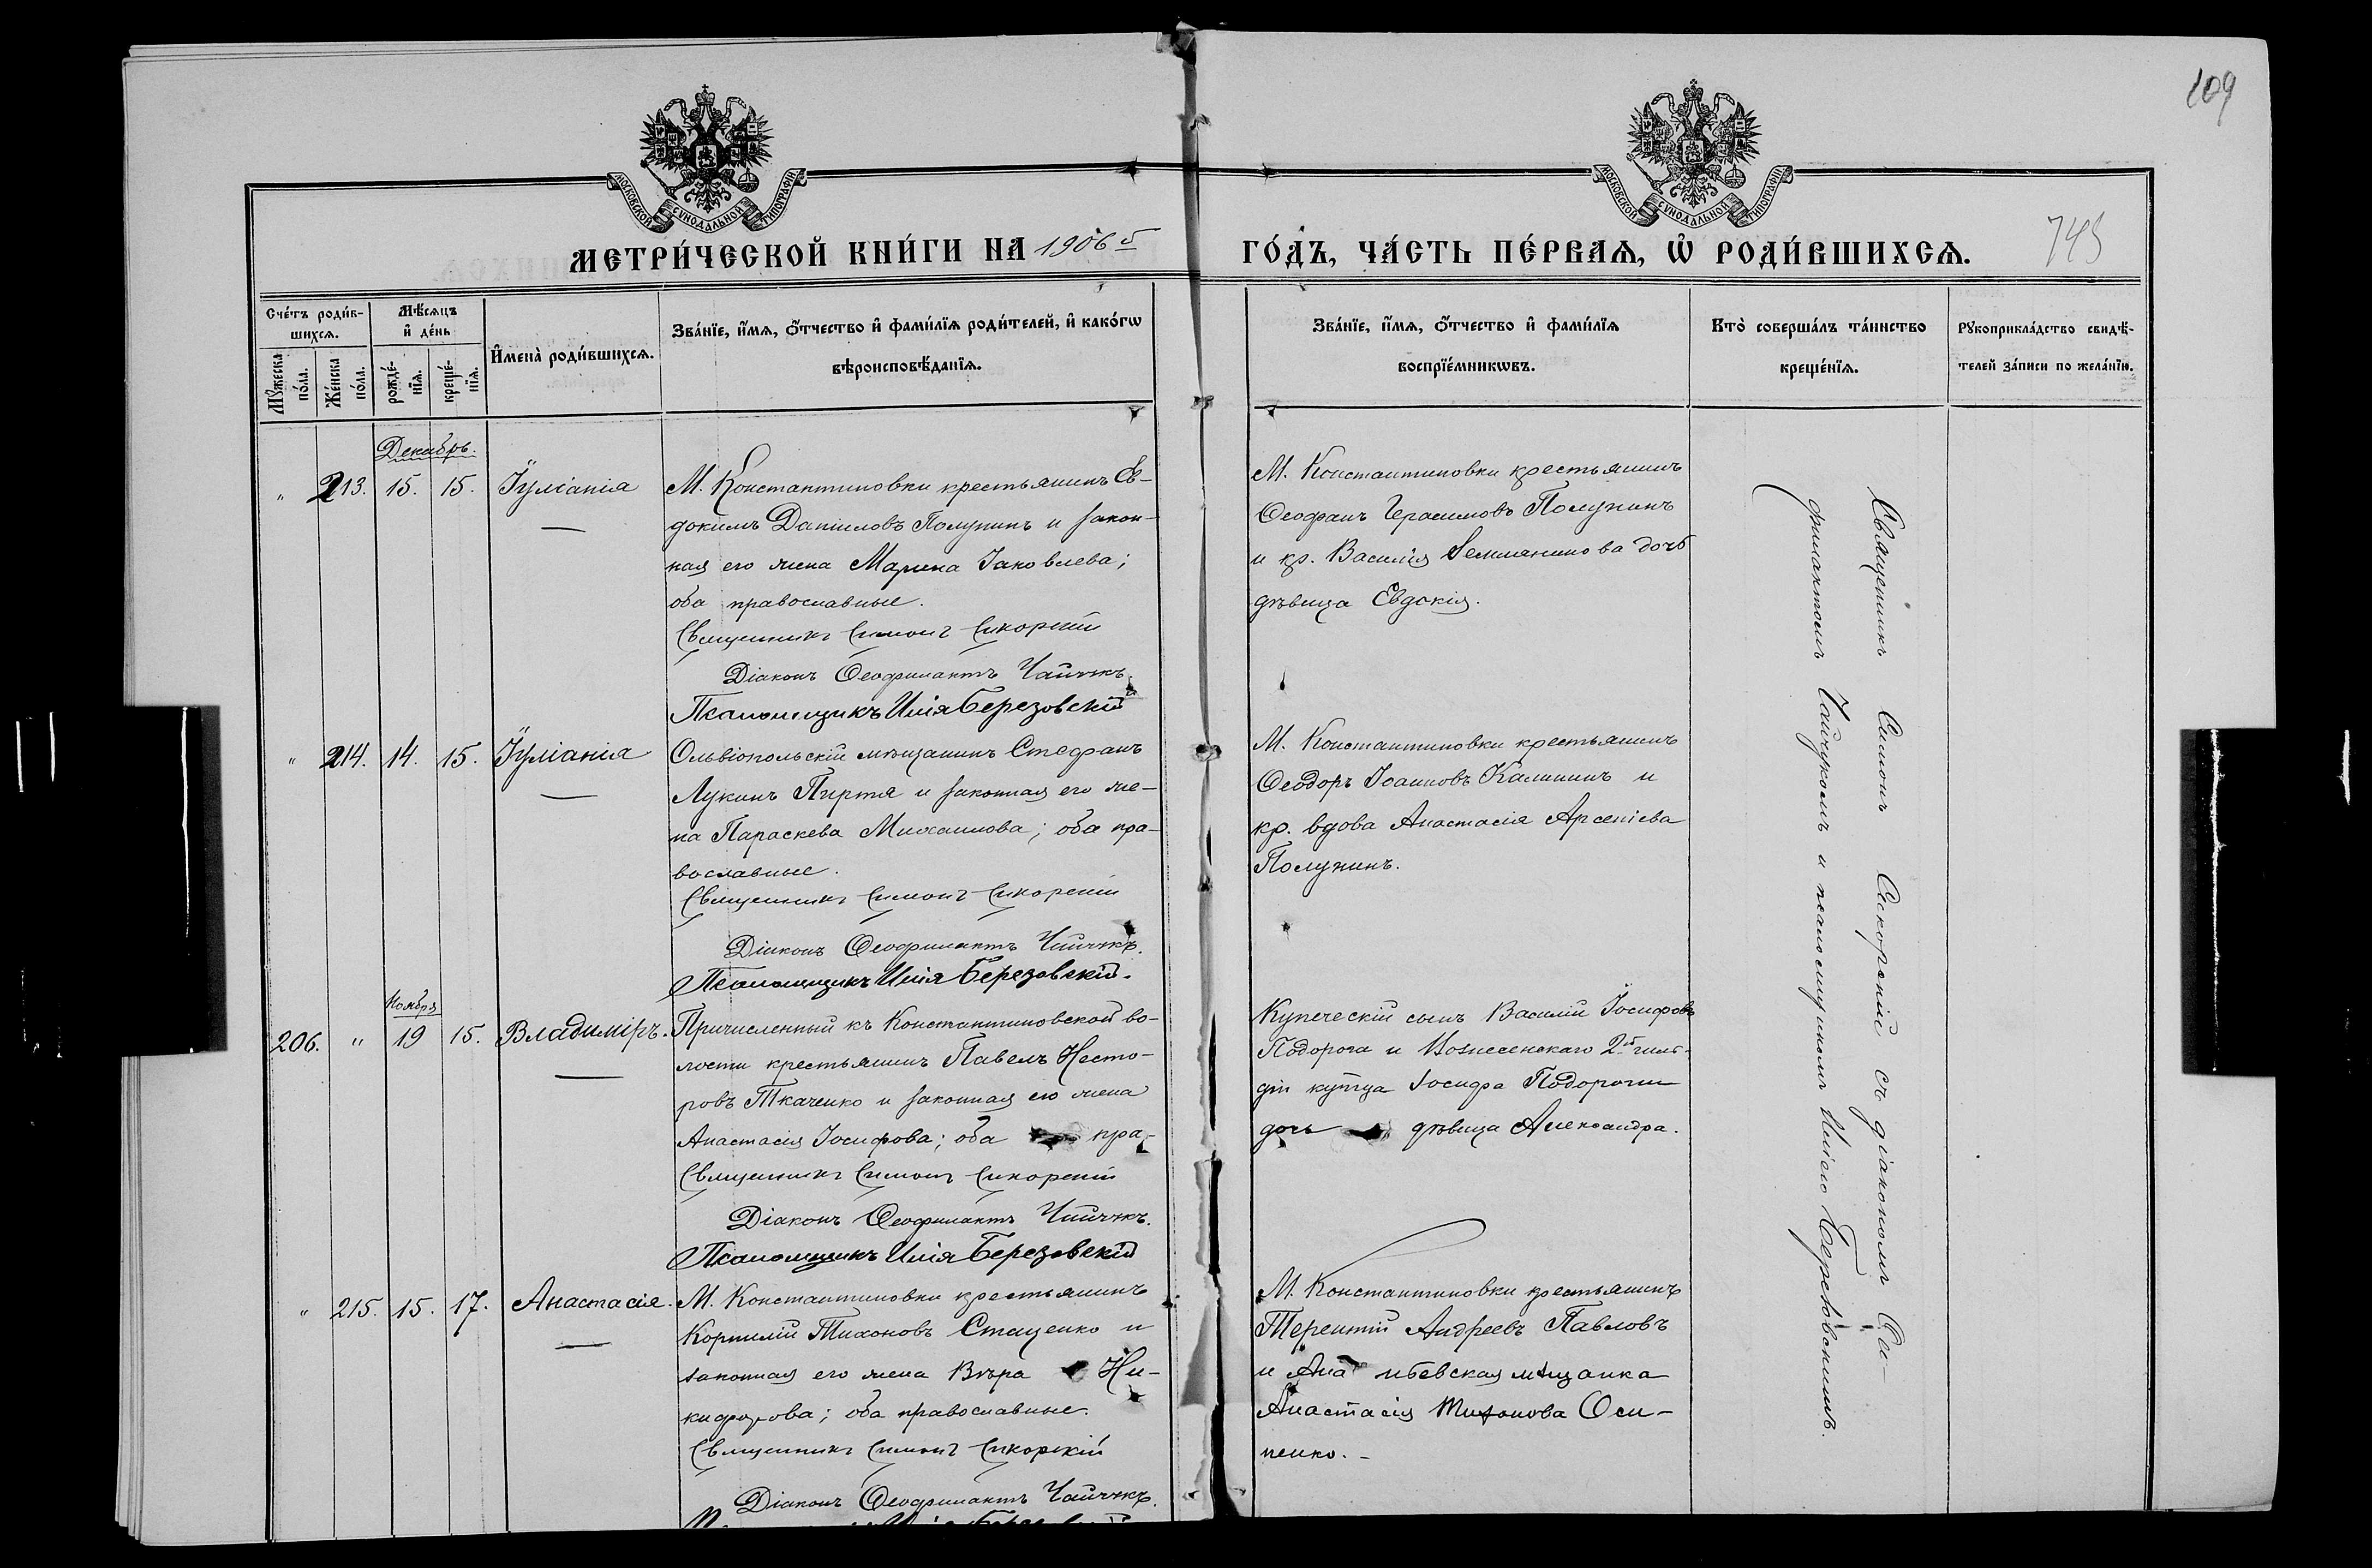 109
МОСКОВСКОЙ СѴНОДАЛЬНОЙ ТИПОГРАФІИ
МОСКОВСКОЙ СѴНОДАЛЬНОЙ ТИПОГРАФІИ
МЕТРИ́ЧЕСКОЙ КНИ́ГИ НА 1906 й
ГО́ДЪ, ЧА́СТЬ ПЕ́РВАЯ, Ѡ҆ РОДИ́ВШИХСЯ.
Сче́тъ роди́в-
шихся.
Мѣ́сяцъ
и҆ де́нь
Мꙋ́жеска
по́ла.
Же́нска
по́ла.
рожде́-
нїя.
креще́-
нїя.
И҆мена̀ роди́вшихся.
Зва́нїе, и҆́мя, ѻ҆́тчество и҆ фами́лїя роди́телей, и҆ како́гѡ
вѣроисповѣ́данїя.
Зва́нїе, и҆́мя, ѻ҆́тчество и҆ фами́лїя
воспрїе́мникѡвъ.
Кто̀ соверша́лъ та́инство
креще́нїя.
Рꙋкоприкла́дство свидѣ́-
телей за́писи по жела́нїю.
Декабрь.
" 213. 15. 15. Іуліанія
М. Константиновки крестьянинъ Ев-
докимъ Даніиловъ Полунинъ и закон-
ная его жена Марина Іаковлева;
оба православные.
Священникъ Симонъ Сикорскій
Діаконъ Ѳеофилактъ Чайчукъ.
Псаломщикъ Илія Березовскій
М. Константиновки крестьянинъ
Ѳеофанъ Герасимовъ Полунинъ
и кр. Василія Землянинова дочь
дѣвица Евдокія.
" 214. 14. 15. Іуліанія
Ольвіопольскій мѣщанинъ Стефанъ
Лукинъ Пиртя и законная его же-
на Параскева Михаилова; оба пра-
вославные.
Священникъ Симонъ Сикорскій
Діаконъ Ѳеофилактъ Чайчукъ.
Псаломщикъ Илія Березовскій.
М. Константиновки крестьянинъ
Ѳеодоръ Іоанновъ Калининъ и
кр. вдова Анастасія Арсеніева
Полунинъ.
Ноября
206. " 19 15. Владиміръ.
Причисленный къ Константиновской во-
лости крестьянинъ Павелъ Несто-
ровъ Ткаченко и законная его жена
Анастасія Іосифова; оба пра-
Священникъ Симонъ Сикорскій
Діаконъ Ѳеофилактъ Чайчукъ.
Псаломщикъ Илія Березовскій
Купеческій сынъ Василій Іосифовъ
Подорога и Вознесенскаго 2-й гиль-
діи купца Іосифа Подороги
дочь дѣвица Александра.
" 215. 15. 17. Анастасія.
М. Константиновки крестьянинъ
Корнилій Тихоновъ Стаценко и
законная его жена Вѣра Ни-
кифорова; оба православные.
Священникъ Симонъ Сикорскій
Діаконъ Ѳеофилактъ Чайчукъ.
М. Константиновки крестьянинъ
Терентій Андреевъ Павловъ
и мѣщанка
Анастасія Тихонова Оси-
пенко. -
Священникъ Симонъ Сикорскій съ діакономъ Ѳео-
филактомъ Чайчукомъ и псаломщикомъ Иліею Березовскимъ.